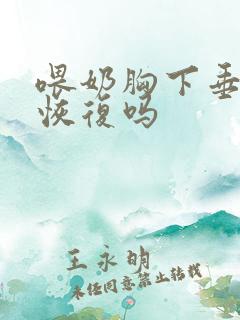 喂奶胸下垂
恢復吗
王永明
未经同意禁止转载